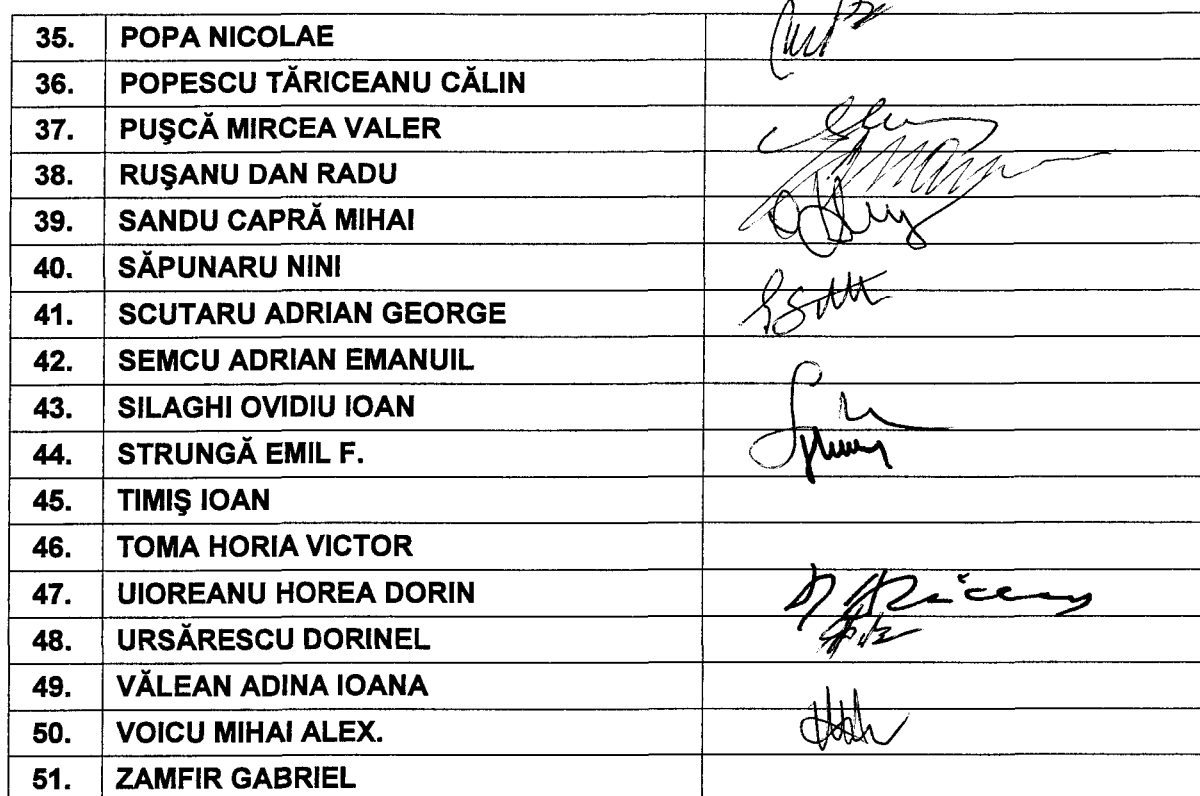 35. POPA NICOLAE
36. POPESCU TĂRICEANU CĂLIN
37. PUŞCĂ MIRCEA VALER
38. RUŞANU DAN RADU
39. SANDU CAPRĂ MIHAI
40. SĂPUNARU NINI
41. SCUTARU ADRIAN GEORGE
42. SEMCU ADRIAN EMANUIL
43. SILAGHI OVIDIU IOAN
44. STRUNGĂ EMIL F.
45. TIMIŞ IOAN
46. TOMA HORIA VICTOR
47. UIOREANU HOREA DORIN
48. URSĂRESCU DORINEL
49. VĂLEAN ADINA IOANA
50. VOICU MIHAI ALEX.
51. ZAMFIR GABRIEL